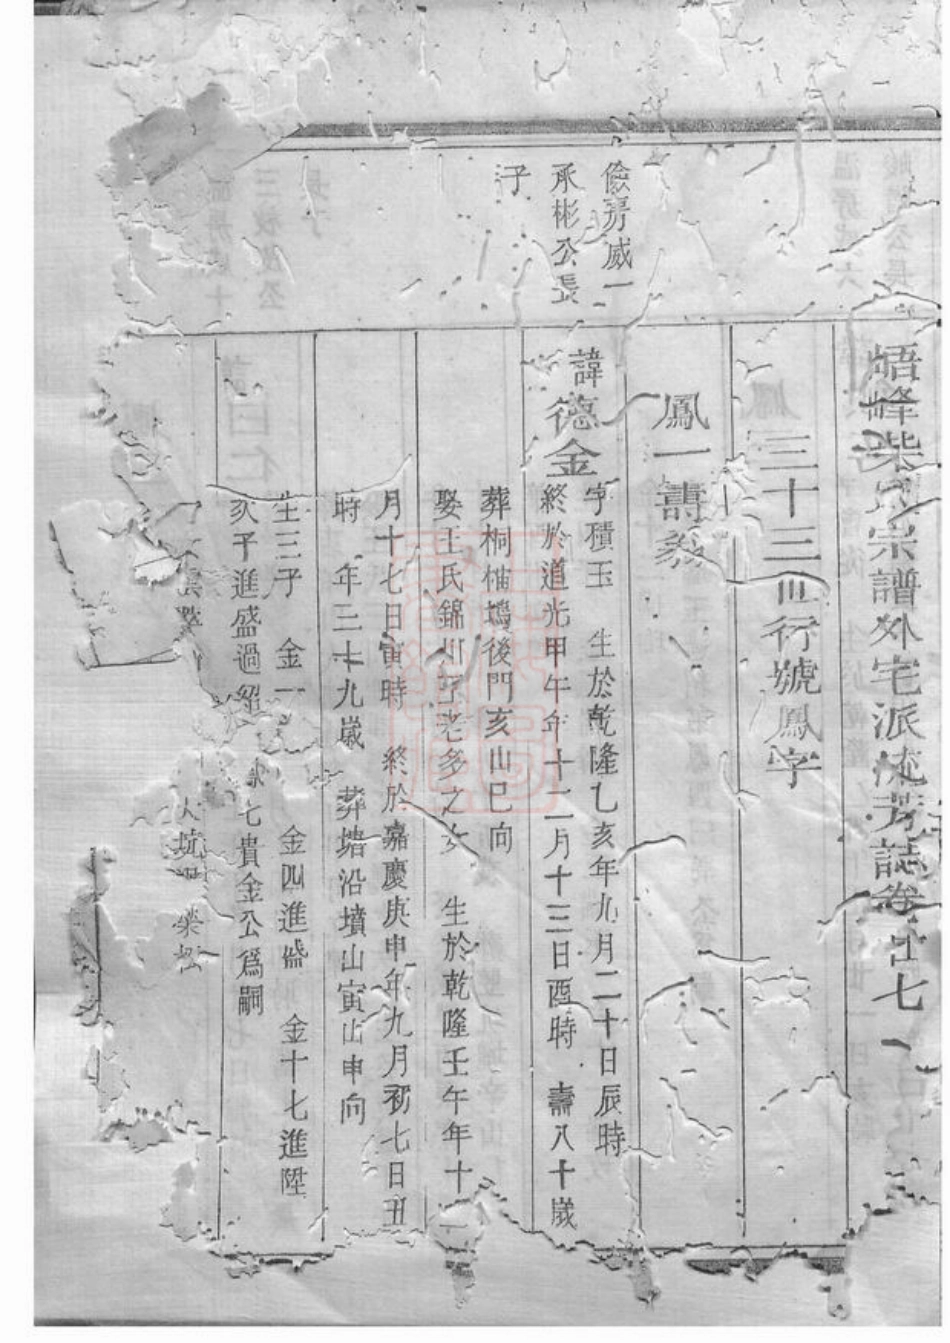 峿峰柴氏宗譜外宅派流芳誌卷廿七
三十三世行號鳳字
鳳一壽
儉房威一
承彬公長
子
諱德金
字積玉 生於乾隆乙亥年九月二十日辰時
終於道光甲午年十二月十三日酉時 壽八十歲
葬桐塢後門亥山巳向
娶王氏錦川老多之女 生於乾隆壬午年十
月十七日寅時 終於嘉慶庚申年九月初七日丑
時 年三十九歲 葬塘沿墳山寅山申向
生三子 金一 金四進 金十七進陞
次子進盛過 七貴金公為嗣
坑